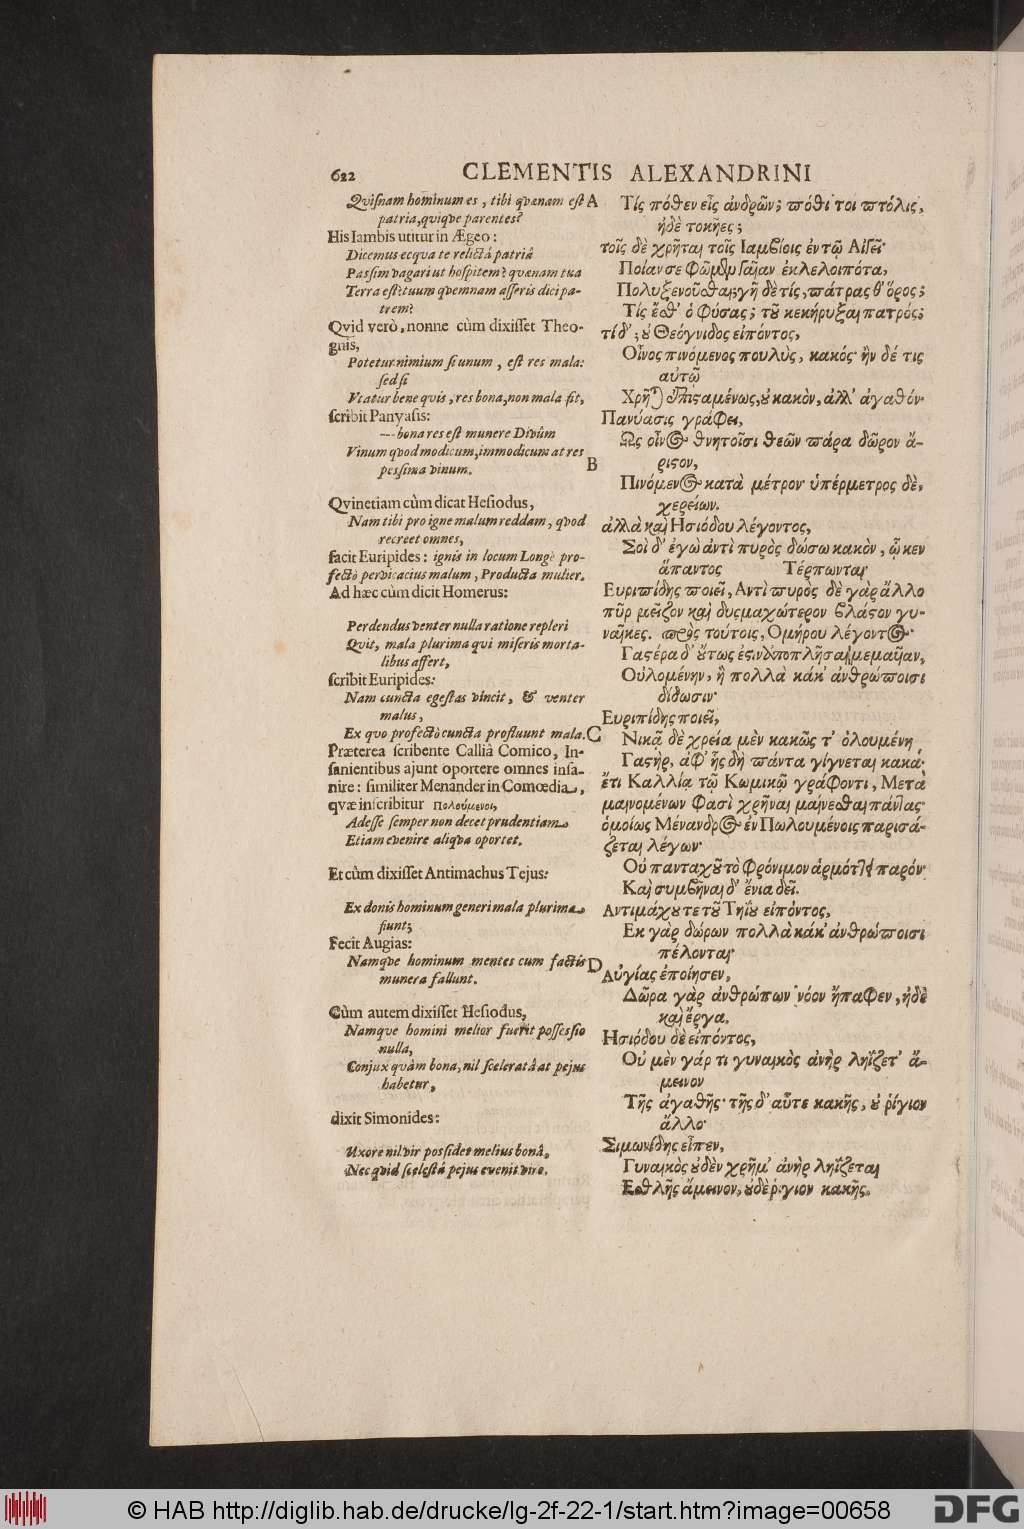 622 CLEMENTIS ALEXANDRINI
Quisnam hominum es, tibi quænam est A
patria, quique parentes?
His Iambis utitur in Ægeo:
Dicemus ecqua te relictâ patriâ
Passim vagari ut hospitem? quænam tua
Terra est? tuum quemnam asseris dici pa-
trem?
Qvid verò, nonne cùm dixisset Theo-
gnis,
Potetur nimium si unum, est res mala:
sed si
Vtatur bene quis, res bona, non mala fit,
scribit Panyasis:
--- bona res est munere Divûm
Vinum quod modicum, immodicum at res
pessima vinum. B
Qvinetiam cùm dicat Hesiodus,
Nam tibi pro igne malum reddam, quod
recreet omnes,
facit Euripides: ignis in locum Longè pro-
fectò pervicacius malum, Producta mulier.
Ad hæc cùm dicit Homerus:
Perdendus venter nulla ratione repleri
Quit, mala plurima qui miseris morta-
libus affert,
scribit Euripides:
Nam cuncta egestas vincit, & venter
malus,
Ex quo profectò cuncta profluunt mala. C
Præterea scribente Calliâ Comico, In-
sanientibus ajunt oportere omnes insa-
nire: similiter Menander in Comœdia,
quæ inscribitur Πολούμενοι,
Adesse semper non decet prudentiam
Etiam evenire aliqua oportet.
Et cùm dixisset Antimachus Tejus:
Ex donis hominum generi mala plurima
fiunt;
Fecit Augias:
Namque hominum mentes cum factis D
munera fallunt.
Cùm autem dixisset Hesiodus,
Namque homini melior fuerit possessio
nulla,
Conjux quàm bona, nil sceleratâ at pejus
habetur,
dixit Simonides:
Uxore nil vir possidet melius bonâ,
Nec quid scelestâ pejus evenit viro.
Τίς πόθεν εἶς ἀνδρῶν; πόθι τοι πτόλις,
ἠδὲ τοκῆες;
τοῖς δὲ χρῆται τοῖς Ιαμβίοις ἐν τῷ Αἰγεῖ·
Ποίαν σε φῶμεν γαῖαν ἐκλελοιπότα,
Πολυξενοῦσθαι; γῆ δὲ τίς, πάτρας θ' ὅρος;
Τίς ἔσθ' ὁ φύσας; τοῦ κεκήρυξαι πατρός;
τί δ'; οὐ Θεόγνιδος εἰπόντος,
Οἶνος πινόμενος πουλὺς, κακός· ἢν δέ τις
αὐτῷ
Χρῆται ἐπισταμένως, οὐ κακὸν, ἀλλ' ἀγαθόν·
Πανύασις γράφει,
Ως οἶνος θνητοῖσι θεῶν πάρα δῶρον ἄ-
ριστον,
Πινόμενος κατὰ μέτρον· ὑπέρμετρος δὲ,
χερείων.
ἀλλὰ καὶ Ησιόδου λέγοντος,
Σοὶ δ' ἐγὼ ἀντὶ πυρὸς δώσω κακὸν, ᾧ κεν
ἅπαντος Τέρπωνται
Ευριπίδης ποιεῖ, Αντὶ πυρὸς δὲ γὰρ ἄλλο
πῦρ μεῖζον καὶ δυσμαχώτερον βλάστον γυ-
ναῖκες. πρὸς τούτοις, Ομήρου λέγοντος·
Γαστέρα δ' οὕτως ἐστιν ἀποπλῆσαι μεμαυῖαν,
Οὐλομένην, ἣ πολλὰ κάκ' ἀνθρώποισι
δίδωσιν·
Ευριπίδης ποιεῖ,
Νικᾷ δὲ χρεία μὲν κακῶς τ' ὀλουμένη
Γαστὴρ, ἀφ' ἧς δὴ πάντα γίγνεται κακά·
ἔτι Καλλίᾳ τῷ Κωμικῷ γράφοντι, Μετὰ
μαινομένων φασὶ χρῆναι μαίνεσθαι πάντας·
ὁμοίως Μένανδρος ἐν Πωλουμένοις παρισά-
ζεται λέγων·
Οὐ πανταχοῦ τὸ φρόνιμον ἁρμόττει παρόν·
Καὶ συμβῆναι δ' ἔνια δεῖ.
Αντιμάχου τε τοῦ Τηΐου εἰπόντος,
Εκ γὰρ δώρων πολλὰ κάκ' ἀνθρώποισι
πέλονται·
Αὐγίας ἐποίησεν,
Δῶρα γὰρ ἀνθρώπων νόον ἤπαφεν, ἠδὲ
καὶ ἔργα.
Ησιόδου δὲ εἰπόντος,
Οὐ μὲν γάρ τι γυναικὸς ἀνὴρ ληΐζετ' ἄ-
μεινον
Τῆς ἀγαθῆς· τῆς δ' αὖτε κακῆς, οὐ ῥίγιον
ἄλλο·
Σιμωνίδης εἶπεν,
Γυναικὸς οὐδὲν χρῆμ' ἀνὴρ ληΐζεται
Εσθλῆς ἄμεινον, οὐδὲ ῥίγιον κακῆς.
© HAB http://diglib.hab.de/drucke/lg-2f-22-1/start.htm?image=00658 DFG